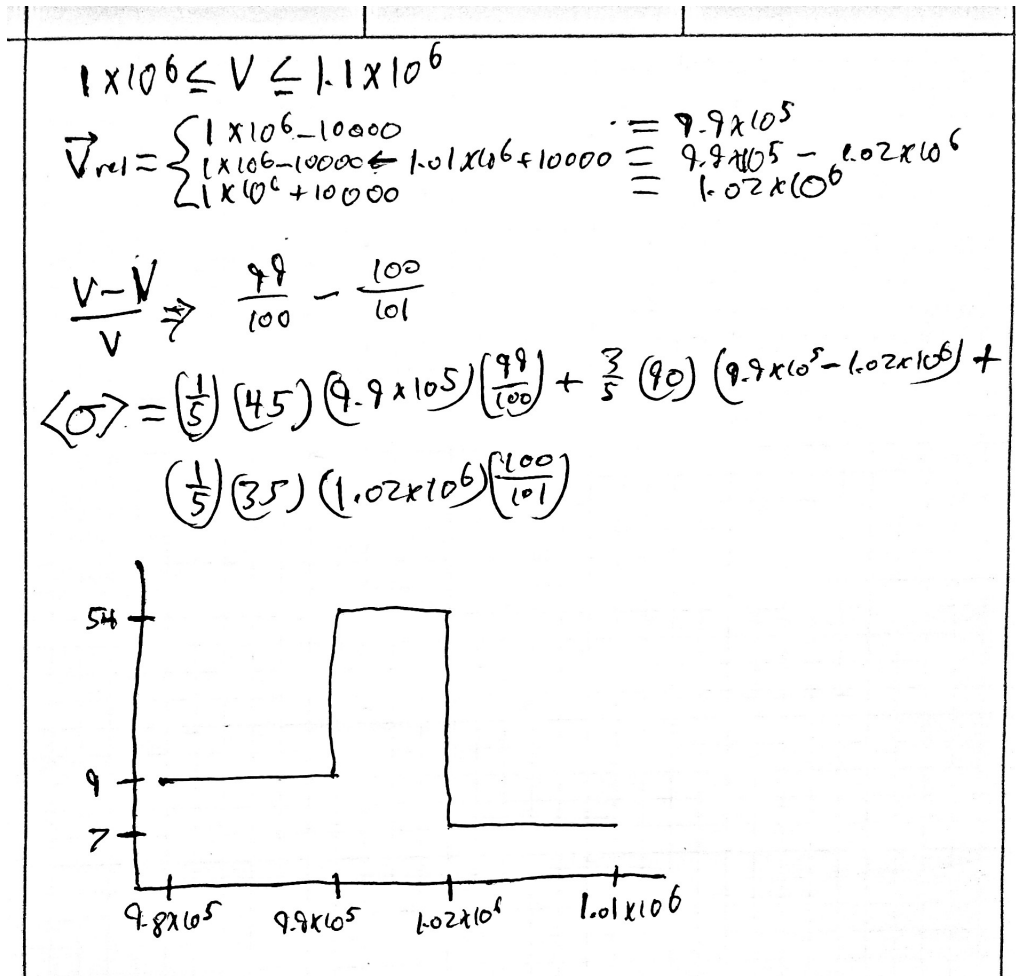 1 x 10^6 ≤ V ≤ 1.1 x 10^6
V⃗rel = { 1 x 10^6 - 10000 = 9.9 x 10^5
1 x 10^6 - 10000 ← 1.01 x 10^6 + 10000 = 9.9 x 10^5 - 1.02 x 10^6
1 x 10^6 + 10000 = 1.02 x 10^6
V - V / V ⇒ 99/100 - 100/101
<σ> = (1/5) (45) (9.9 x 10^5) (99/100) + 3/5 (90) (9.9 x 10^5 - 1.02 x 10^6) +
(1/5) (35) (1.02 x 10^6) (100/101)
54
9
7
9.8 x 10^5 9.9 x 10^5 1.02 x 10^6 1.01 x 10^6